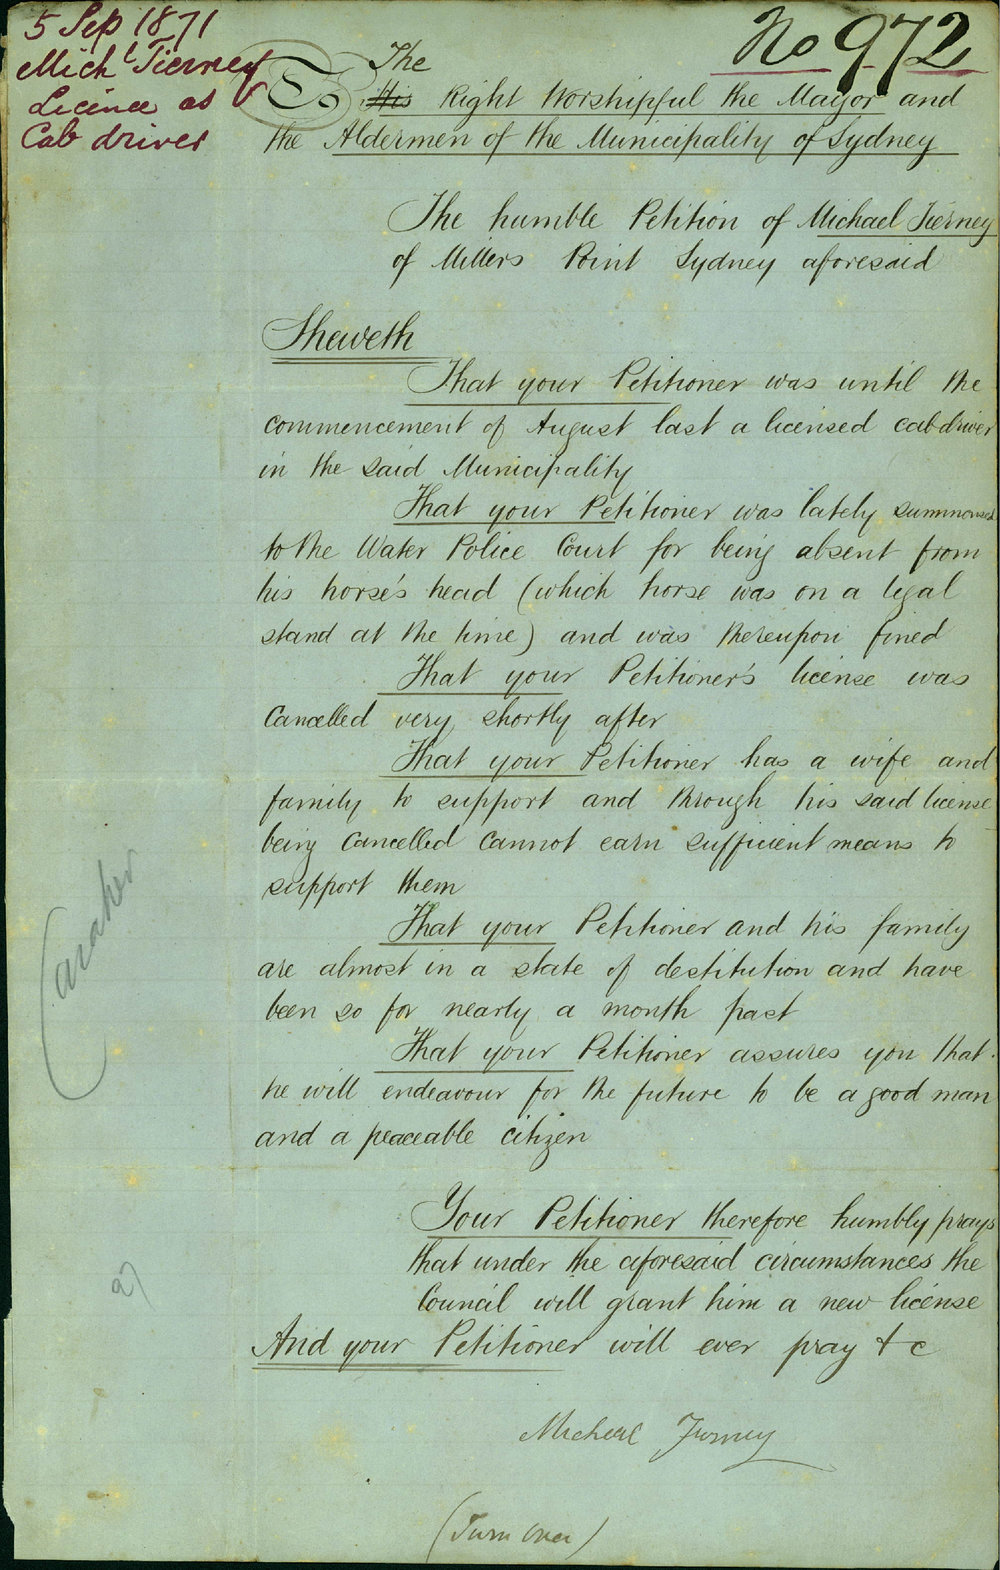 5 Sep 1871
Mich^l Tierney
Licence as
Cab driver
No 972
The
To His Right Worshipful the Mayor and
the Aldermen of the Municipality of Sydney
The humble Petition of Michael Tierney
of Millers Point Sydney aforesaid
Sheweth
That your Petitioner was until the
commencement of August last a licensed cab driver
in the said Municipality
That your Petitioner was lately summonsed
to the Water Police Court for being absent from
his horse's head (which horse was on a legal
stand at the time) and was thereupon fined
That your Petitioner's license was
cancelled very shortly after
That your Petitioner has a wife and
family to support and through his said license
being cancelled cannot earn sufficient means to
support them
That your Petitioner and his family
are almost in a state of destitution and have
been so for nearly a month past
That your Petitioner assures you that
he will endeavour for the future to be a good man
and a peaceable citizen
Your Petitioner therefore humbly prays
that under the aforesaid circumstances the
Council will grant him a new license
And your Petitioner will ever pray &c
Micheal Tierney
(Turn Over)
Caraher